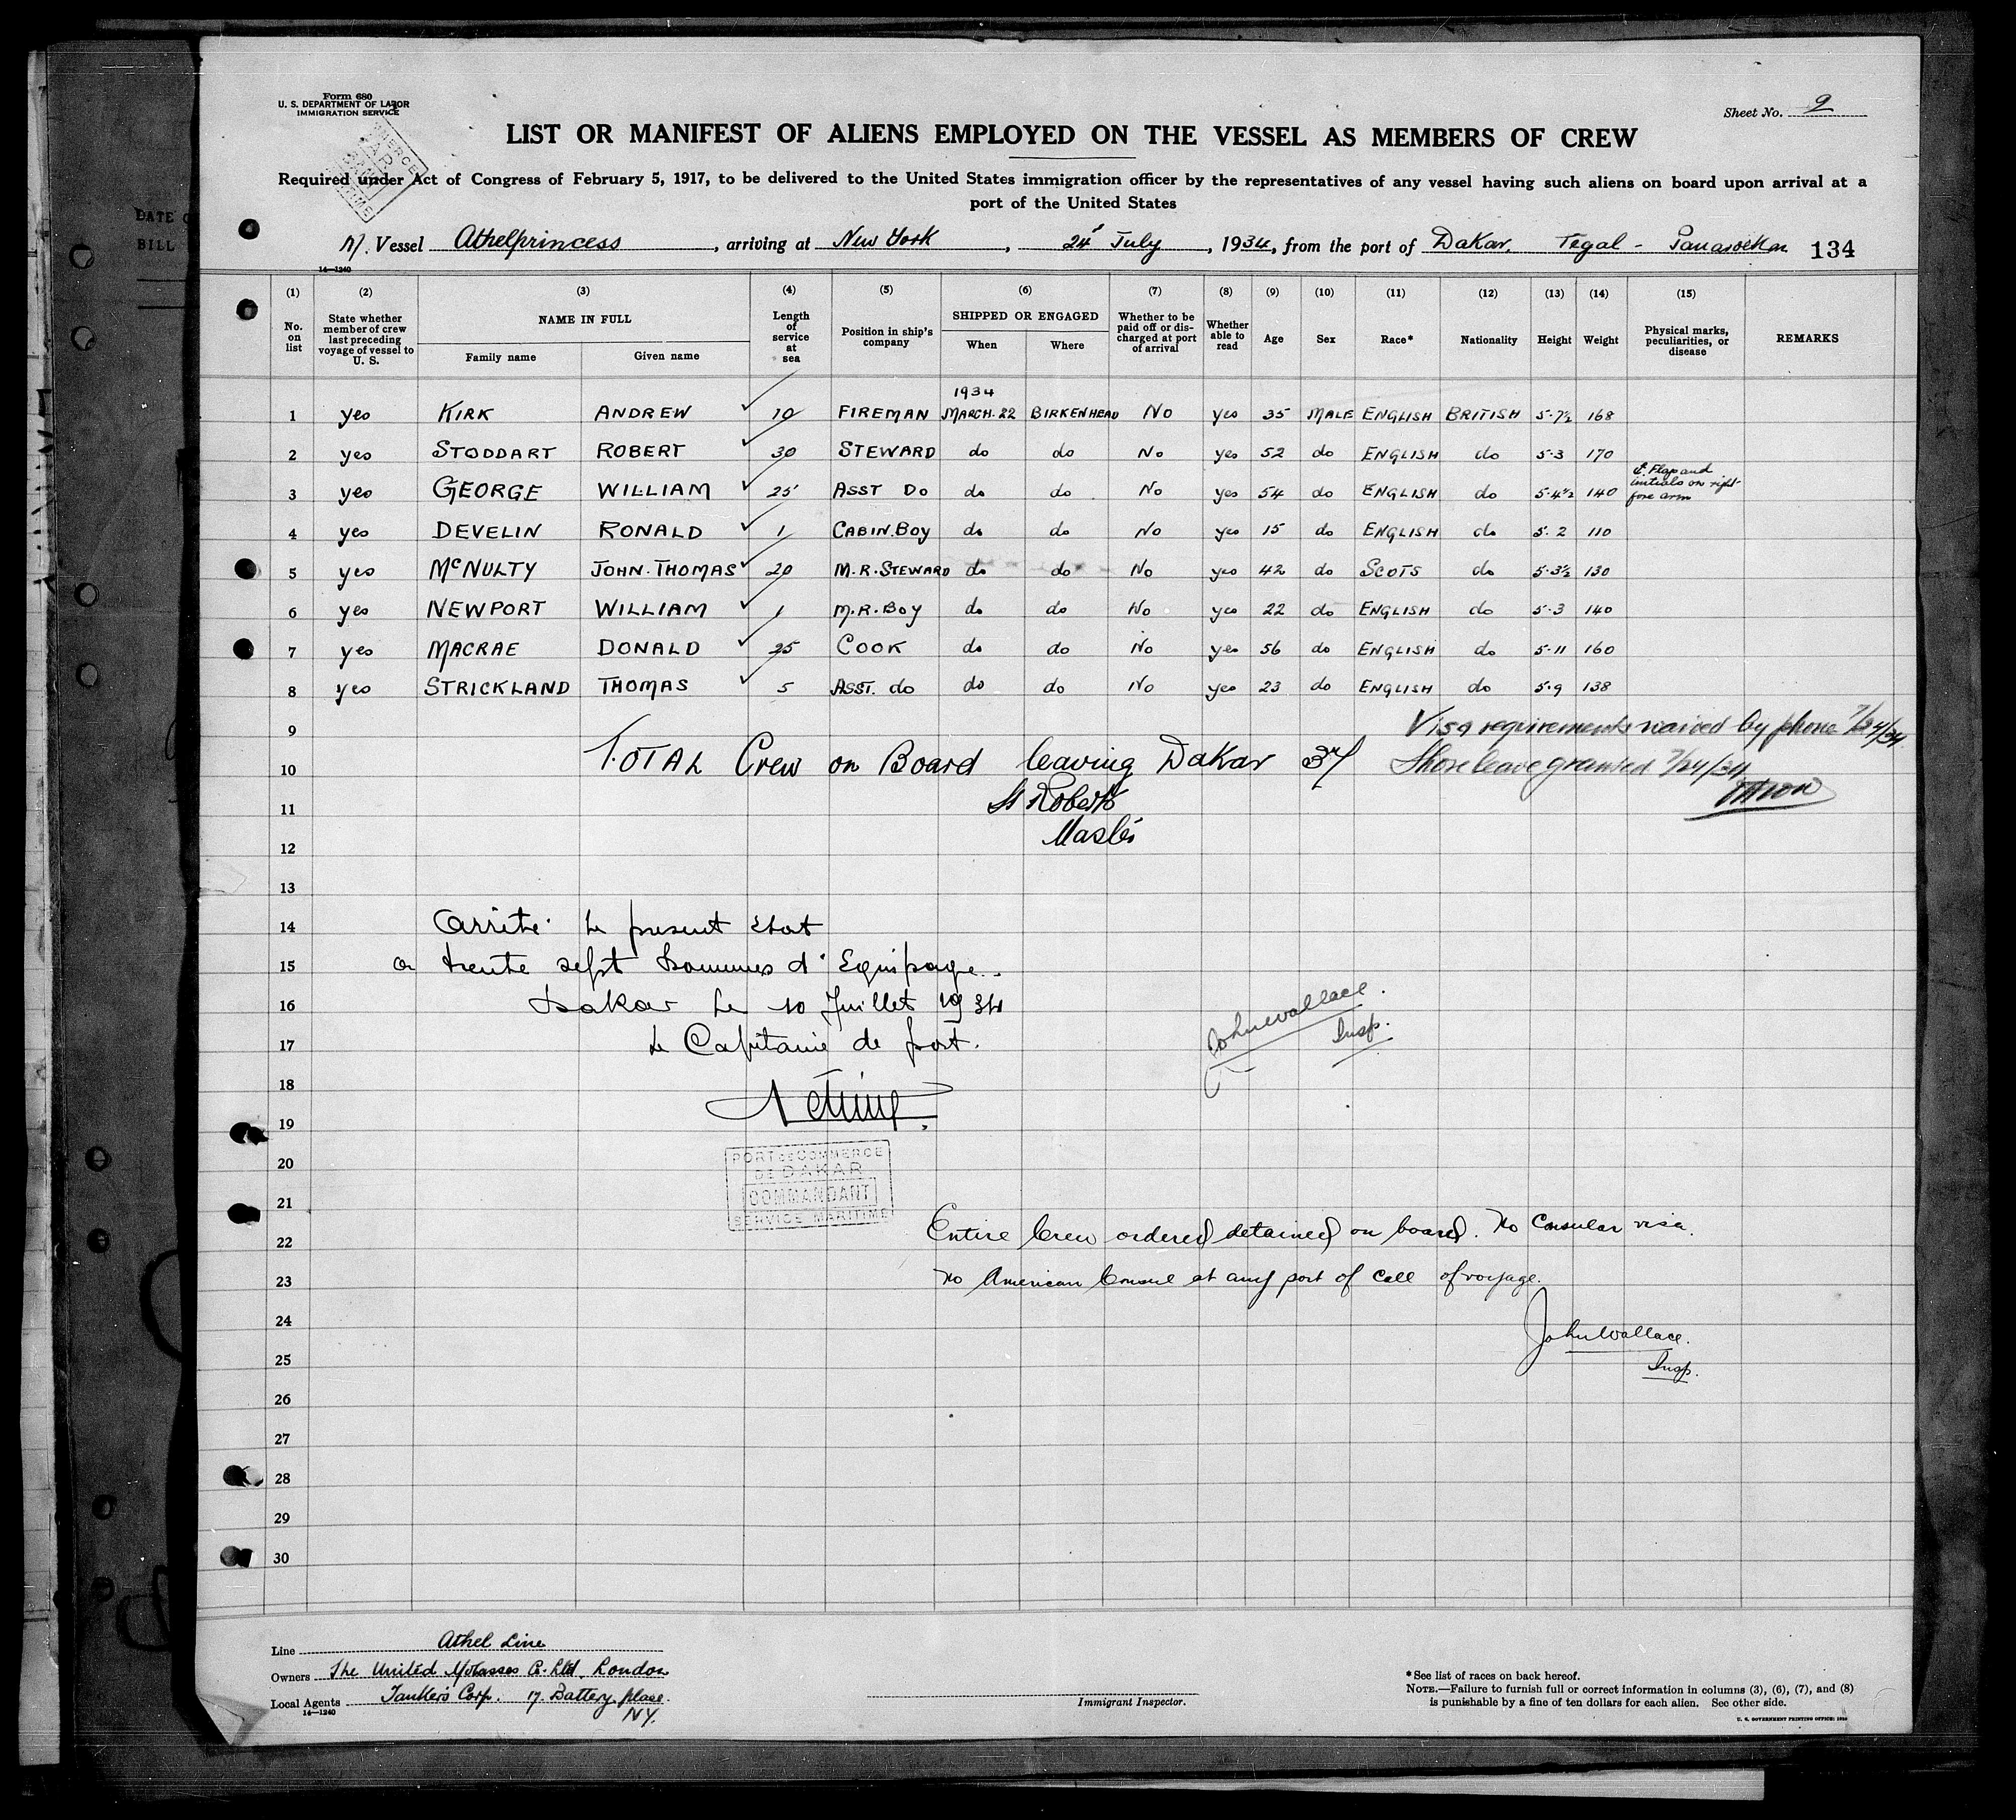 Form 680
U. S. DEPARTMENT OF LABOR
IMMIGRATION SERVICE
Sheet No. 9
LIST OR MANIFEST OF ALIENS EMPLOYED ON THE VESSEL AS MEMBERS OF CREW
Required under Act of Congress of February 5, 1917, to be delivered to the United States immigration officer by the representatives of any vessel having such aliens on board upon arrival at a
port of the United States
M. Vessel Athelprincess, arriving at New York, 24 July, 1934, from the port of Dakar, Tegal - Panaroekan 134
14—1240
(1) (2) (3) (4) (5) (6) (7) (8) (9) (10) (11) (12) (13) (14) (15)
No. on list | State whether member of crew last preceding voyage of vessel to U. S. | NAME IN FULL Family name Given name | Length of service at sea | Position in ship's company | SHIPPED OR ENGAGED When Where | Whether to be paid off or discharged at port of arrival | Whether able to read | Age | Sex | Race* | Nationality | Height | Weight | Physical marks, peculiarities, or disease | REMARKS
1934
1 yes KIRK ANDREW 10 FIREMAN MARCH.22 BIRKENHEAD No yes 35 MALE ENGLISH BRITISH 5-7½ 168
2 yes STODDART ROBERT 30 STEWARD do do No yes 52 do ENGLISH do 5-3 170
3 yes GEORGE WILLIAM 25 ASST DO do do No yes 54 do ENGLISH do 5-4½ 140 Flag and initials on right fore arm
4 yes DEVELIN RONALD 1 CABIN.BOY do do No yes 15 do ENGLISH do 5-2 110
5 yes McNULTY JOHN.THOMAS 20 M.R.STEWARD do do No yes 42 do SCOTS do 5-3½ 130
6 yes NEWPORT WILLIAM 1 M.R.BOY do do No yes 22 do ENGLISH do 5-3 140
7 yes MACRAE DONALD 25 COOK do do No yes 56 do ENGLISH do 5-11 160
8 yes STRICKLAND THOMAS 5 ASST. do do do No yes 23 do ENGLISH do 5-9 138
9 Visa requirements waived by phone 7/24/34
10 TOTAL Crew on Board leaving Dakar 37 Shore leave granted 7/24/34
11 Roberts
12 Master
13
14 Arrêté le present Etat
15 a trente sept hommes d'Equipage.
16 Dakar le 10 Juillet 1934 John Wallace.
17 Le Capitaine de port. Insp.
18
19
20 PORT DE COMMERCE
DE DAKAR
21 COMMANDANT
SERVICE MARITIME
22 Entire Crew ordered detained on board. No Consular visa.
23 No American Consul at any port of call of voyage.
24 John Wallace.
25 Insp.
26
27
28
29
30
Line Athel Line
Owners The United Molasses Co. Ltd. London
Local Agents Tankers Corp. 17. Battery place.
NY.
14—1240
Immigrant Inspector.
*See list of races on back hereof.
NOTE.—Failure to furnish full or correct information in columns (3), (6), (7), and (8)
is punishable by a fine of ten dollars for each alien. See other side.
DATE
BILL